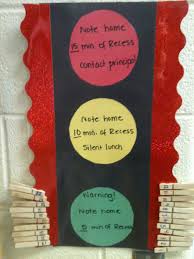 Note home
15 min of Recess
contact principal
Note home
10 min. of Recess
Silent lunch
Warning!
Note home
5 min of Recess